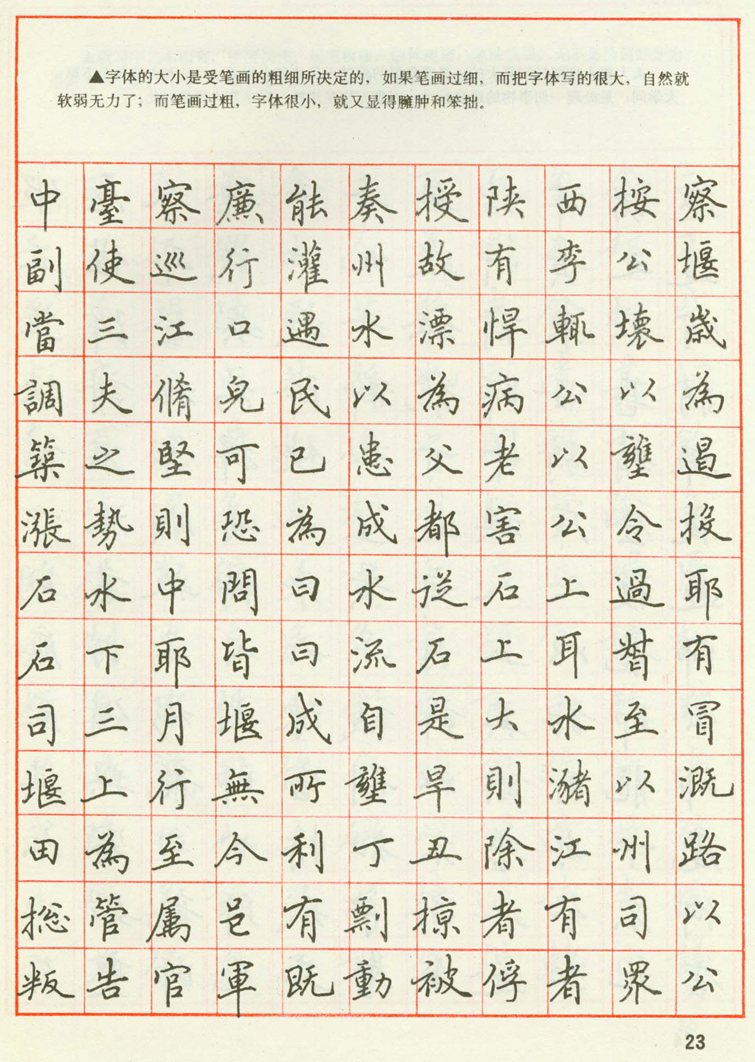 ▲字体的大小是受笔画的粗细所决定的，如果笔画过细，而把字体写的很大，自然就
软弱无力了；而笔画过粗，字体很小，就又显得臃肿和笨拙。
中臺察廉能奏授陕西按察
副使巡行灌州故有李公堰
當三江口遇水漂悍輒壞歲
調夫脩皃民以為病公以為
築之堅可已患父老以壅遏
漲勢則恐為成都害公令投
石水中問曰水從石上過耶
石下耶皆曰流石上耳督有
司三月堰成自是大水至冒
堰上行無所壅旱則瀦以溉
田為至今利丁丑除江州路
総管属邑有剽掠者有司以
叛告官軍既動被俘者眾公
23